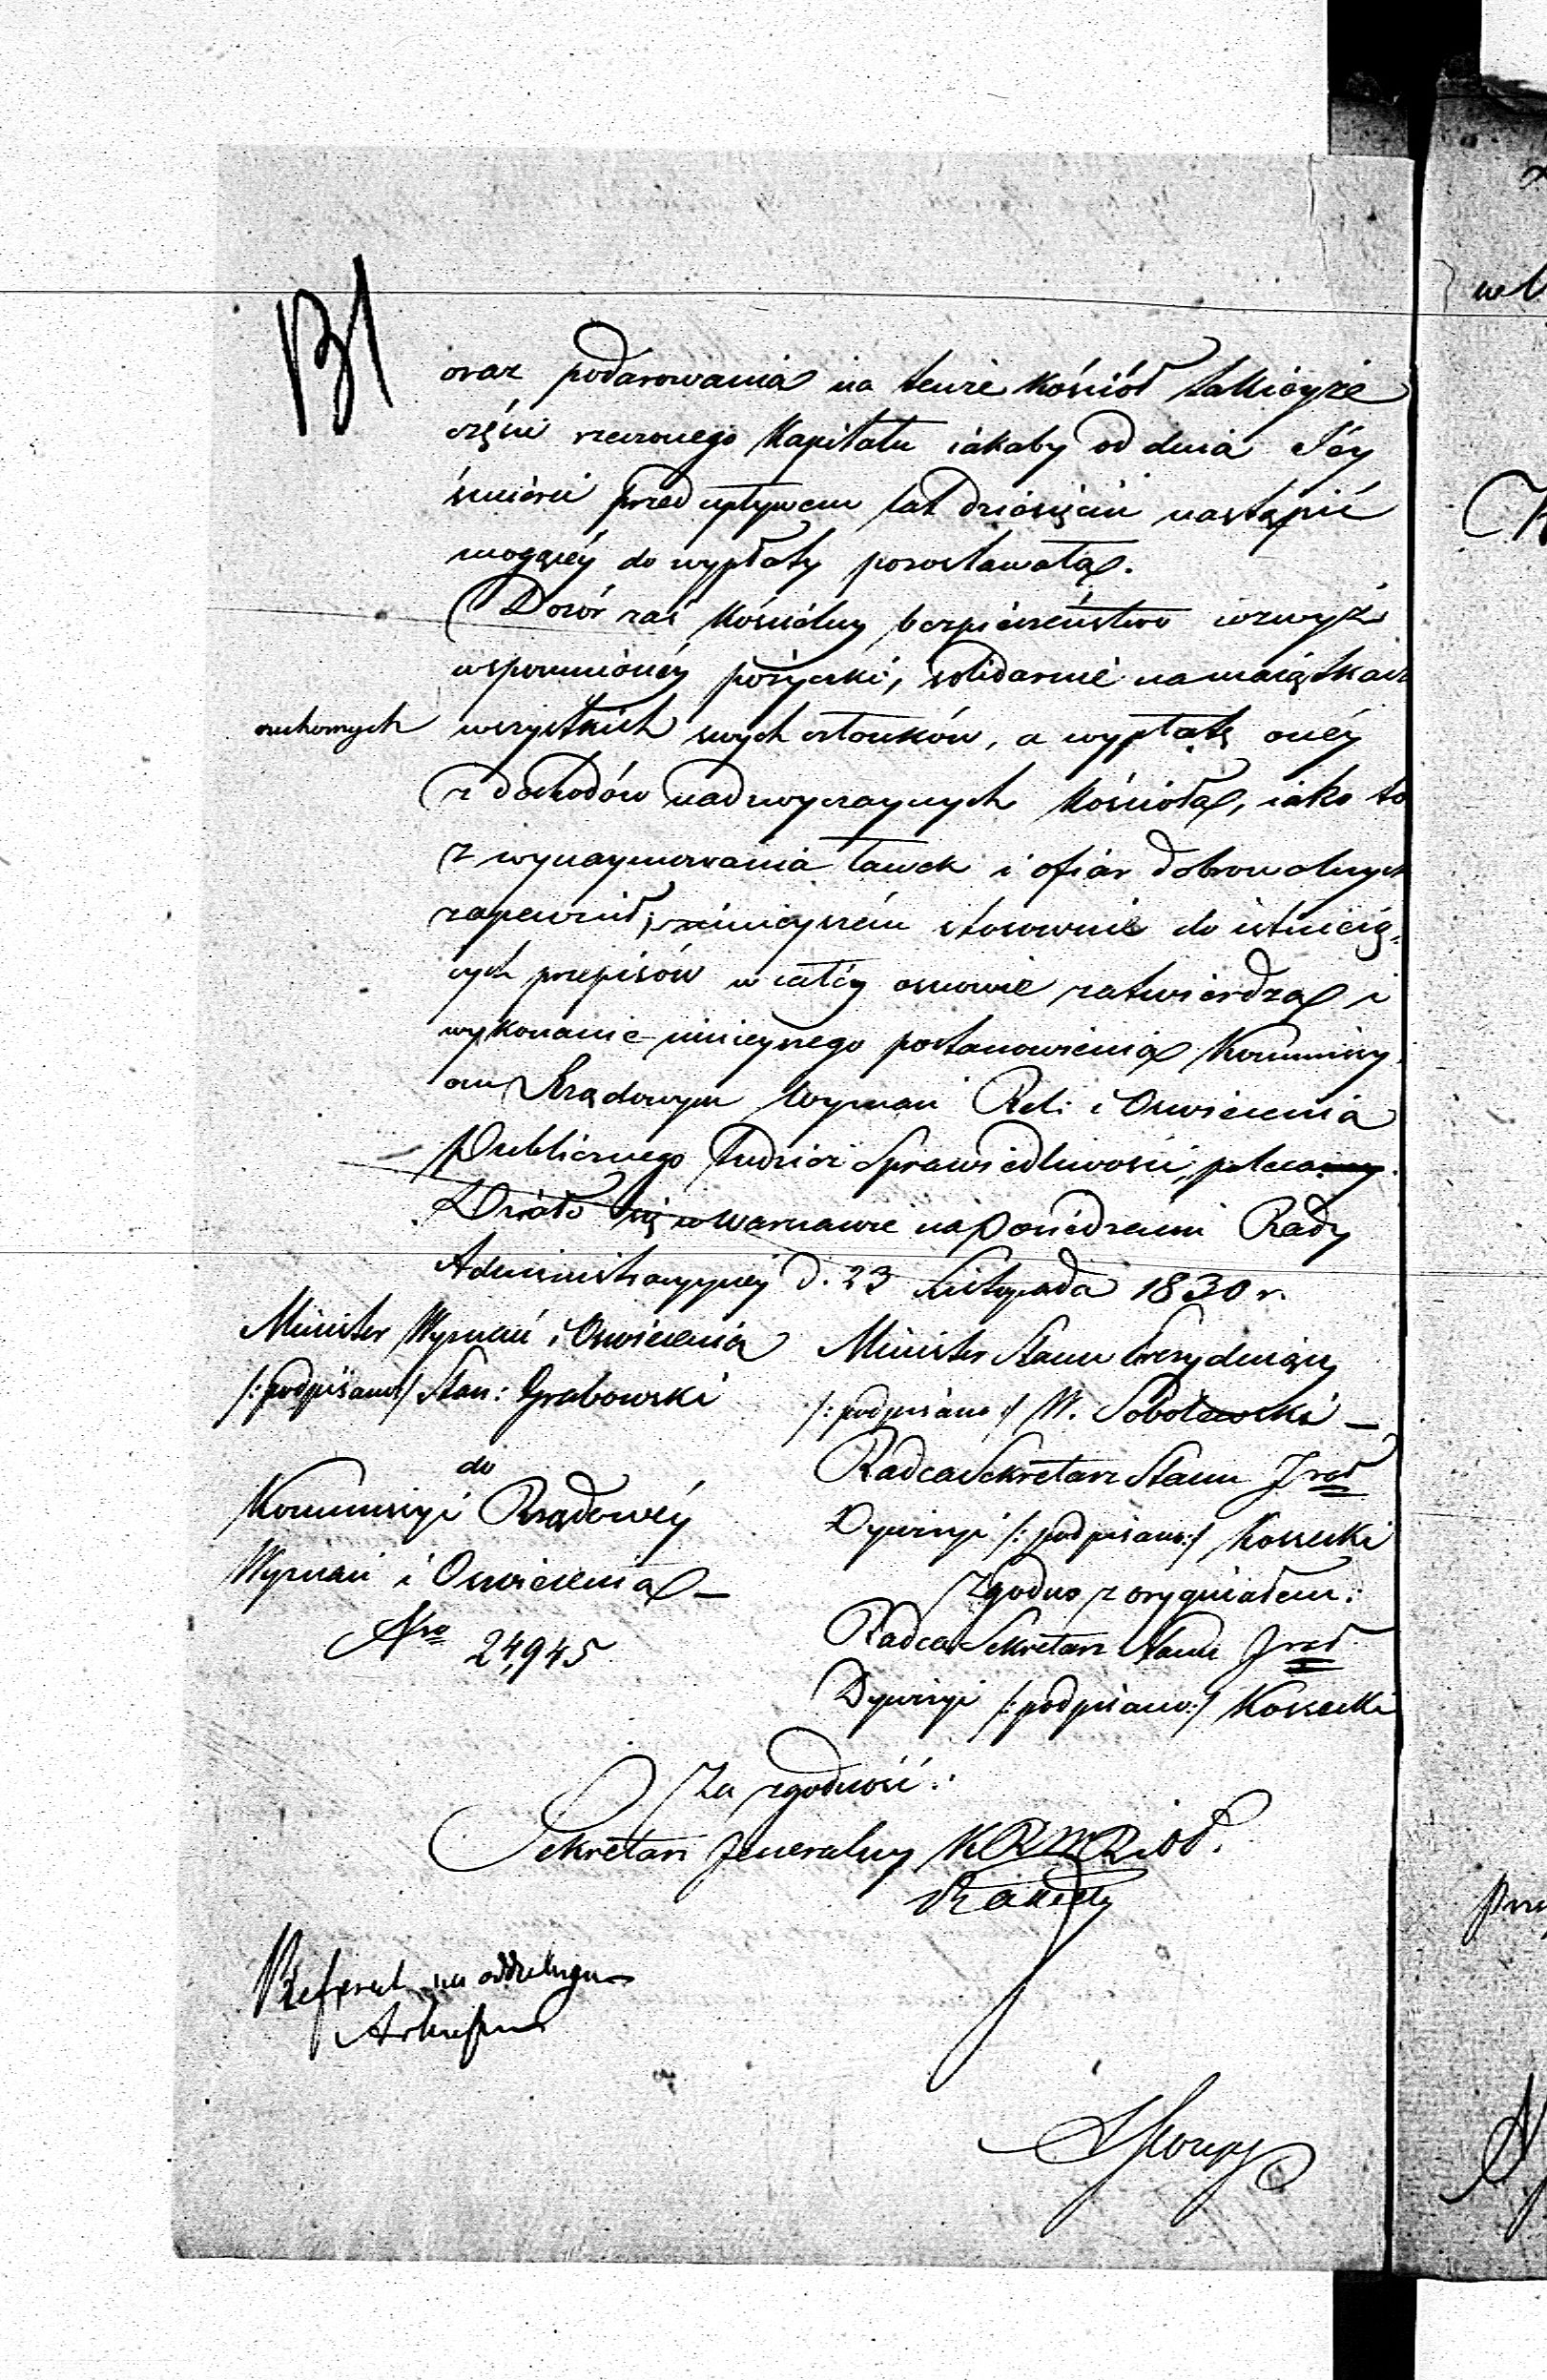 131
oraz podarowania na tenże Kościół takieyże
części rzeczonego Kapitału iakaby od dnia Jéy
śmierci przed upływem lat dziesięciu nastąpić
mogącéy do wypłaty pozostawała.
Dozór zaś Kościelny bezpieczeństwo wzwyż
wspomnionéy pożyczki, solidarnie na maiątkach
ruchomych wszystkich swych członków, a wypłatę onéy
z dochodów nadzwyczaynych Kościoła, iako to
z wynaymowania ławek i ofiar dobrowolnych
zapewnił; ninieyszém stosownie do istnieią-
cych przepisów w całéy osnowie zatwierdza i
wykonanie ninieyszego postanowienia Kommissy-
om Rządowym Wyznań Reli: i Oswiecenia
Publicznego tudzież Sprawiedliwości, poleca
Działo się w Warszawie na Posiedzeniu Rady
Administracyjnéy d. 23 Listopada 1830 r.
Minister Wyznań i Oswiecenia
/:podpisano:/ Stan: Grabowski
do
Kommissyi Rządowéy
Wyznań i Oswiecenia —
Nro 24,945
Minister Stanu Prezyduiący
/:podpisano:/ W. Sobolewski —
Radca Sekretarz Stanu Jrał
Dywizyi /:podpisano:/ Kossecki
Zgodno z oryginałem:
Radca Sekretarz Stanu Jrał
Dywizyi /:podpisano:/ Kossecki
Za zgodność:
Sekretarz Jeneralny KRWRiOP.
Referat na oddzielnym